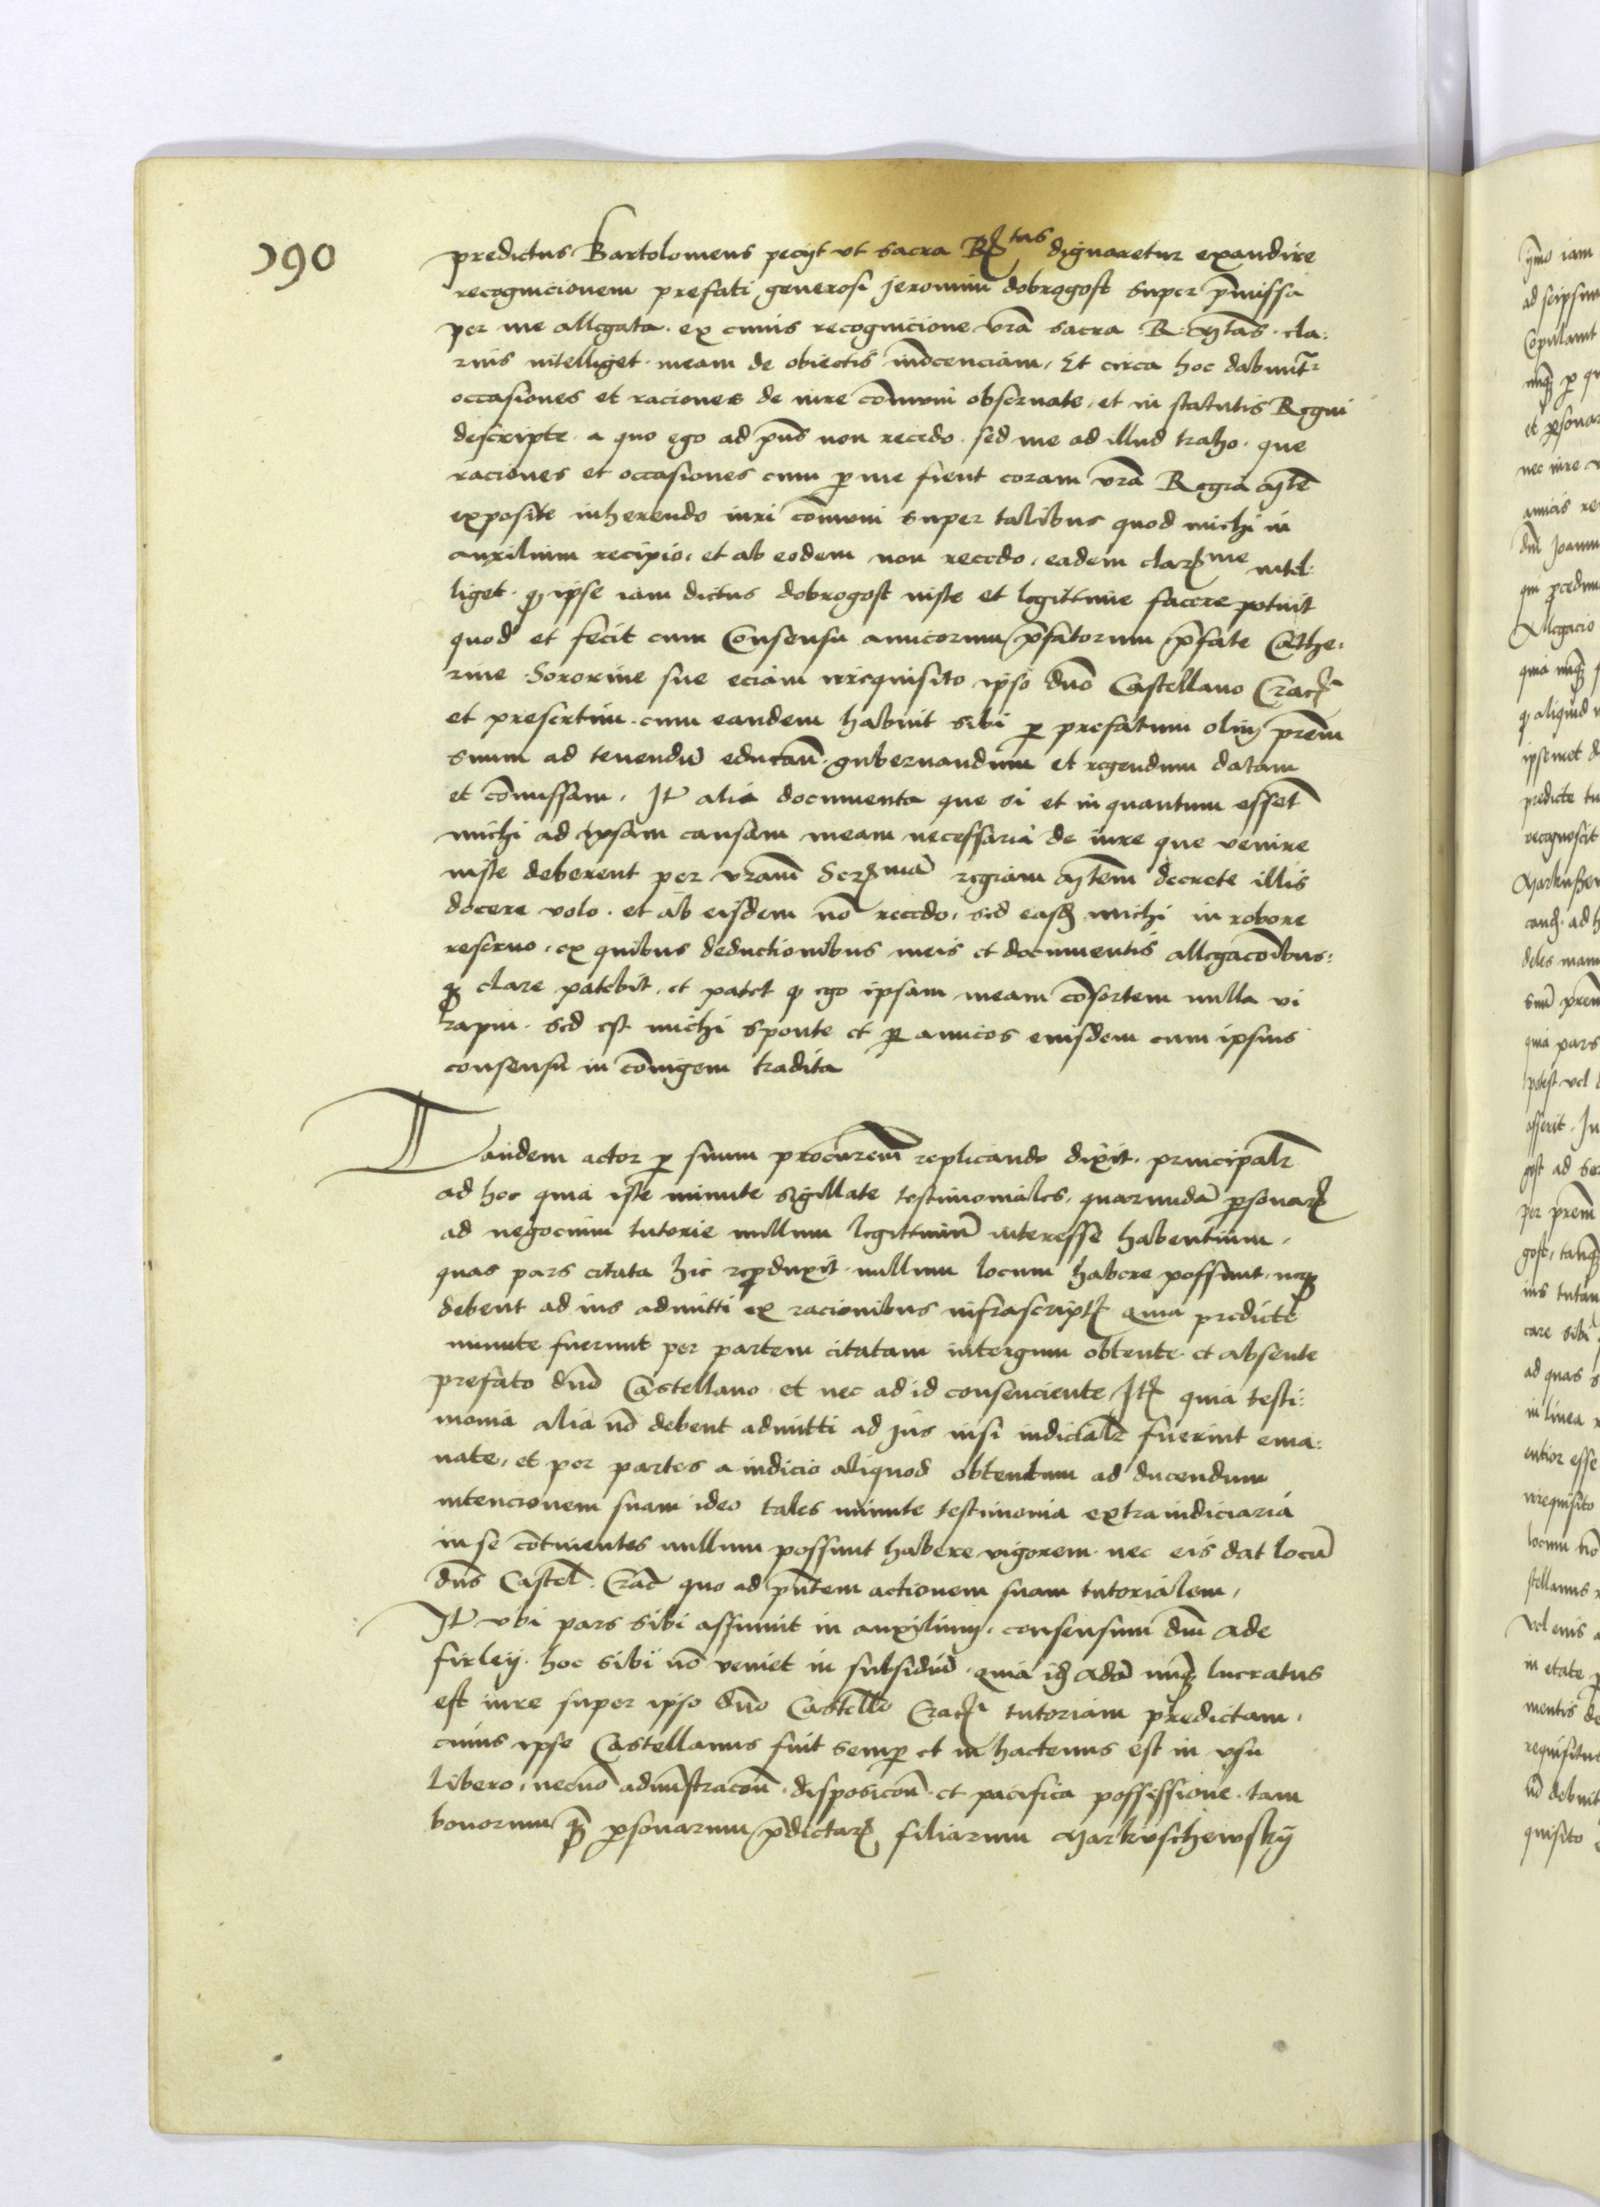 190
predictus Bartolomeus pecyt ut sacra R. tas dignaretur exaudire
recognicionem prefati generosi Jeronimi dobrogost super p̄missa
per me allegata. ex cuius recognicione vr̄a sacra R. M̄tas. cla:
rius intelliget. meam de obiectis in̄ocenciam, Et circa hoc dabunt̄r
occasiones et raciones de iure com̄uni obseruate, et in statutis Regni
descripte. a quo ego ad p̄ns non recedo. sed me ad illud traho. que
raciones et occasiones cum p̱ me fient coram vr̄a Regia M̄te
exposite inherendo iuri com̄uni super talibus quod michi in
auxilium recipio, et ab eodem non recedo, eadem clarꝫme intel:
liget. ꝙ ipse iam dictus dobrogost iuste et legittime facere potuit
quod et fecit cum Consensu amicorum p̄fatorum p̄fate Cathe:
rine Sororine sue eciam irrequisito ipso dn̄o Castellano Cracꝫ
et presertim. cum eandem habuit sibi p̱ prefatum olim pr̄em
suum ad tenendū educan̄. gubernandum et regendum datam
et com̄issam. Jt̄ alia documenta que si et in quantum essent
michi ad ipsam causam meam necessaria de iure que venire
iuste deberent per vr̄am Serꝫmā regiam M̄tem decrete illis
docere volo. et ab eisdem nō recedo, sed easdꝫ michi in robore
reseruo, ex quibus deductionibus meis et documentis allegacōibus:
ꝙ clare patebit, et patet ꝙ ego ipsam meam cōsortem nulla vi
rapui. sed est michi sponte et p̱ amicos eiusdem cum ipsius
consensu in cōiugem tradita
Tandem actor p̱ suum procur̄em replicando dixit. principalr̄
ad hoc quia iste minute sigillate testimoniales, quarumdā p̱sonarꝫ
ad negocium tutorie nullum legittimū interesse habentium,
quas pars citata hic rep̱duxit. nullum locum habere possunt, neqꝫ
debent ad ius admitti ex racionibus infrascriptꝫ Quia predicte
minute fuerunt per partem citatam intergum obtente. et absente
prefato dn̄o Castellano. et nec ad id consenciente, Jtꝫ quia testi:
monia alia nō debent admitti ad Jus nisi iudicialr̄ fuerint ema:
nate, et per partes a iudicio aliquod obtentum ad ducendum
intencionem suam ideo tales minute testimonia extraiudiciaria
in se cōtinentes nullum possunt habere vigorem. nec eis dat locū
dn̄s Castel̄. Crac̄ quo ad p̄ntem actionem suam tutorialem,
Jt̄ vbi pars sibi assumit in auxilium, consensum dn̄i Ade
firleÿ. hoc sibi nō veniet in subsidiū. quia idꝫ Adā nūqꝫ lucratus
est iure super ipso dn̄o Castell̄o Cracꝫ tutoriam predictam,
cuius ipse Castellanus fuit semp̱ et in hactenus est in vsu
libero, necnō administracōn̄. disposicōn̄. et pacifica possessione. tam
bonorum qꝫ p̱sonarum p̄dictarꝫ filiarum Markvschewskÿ